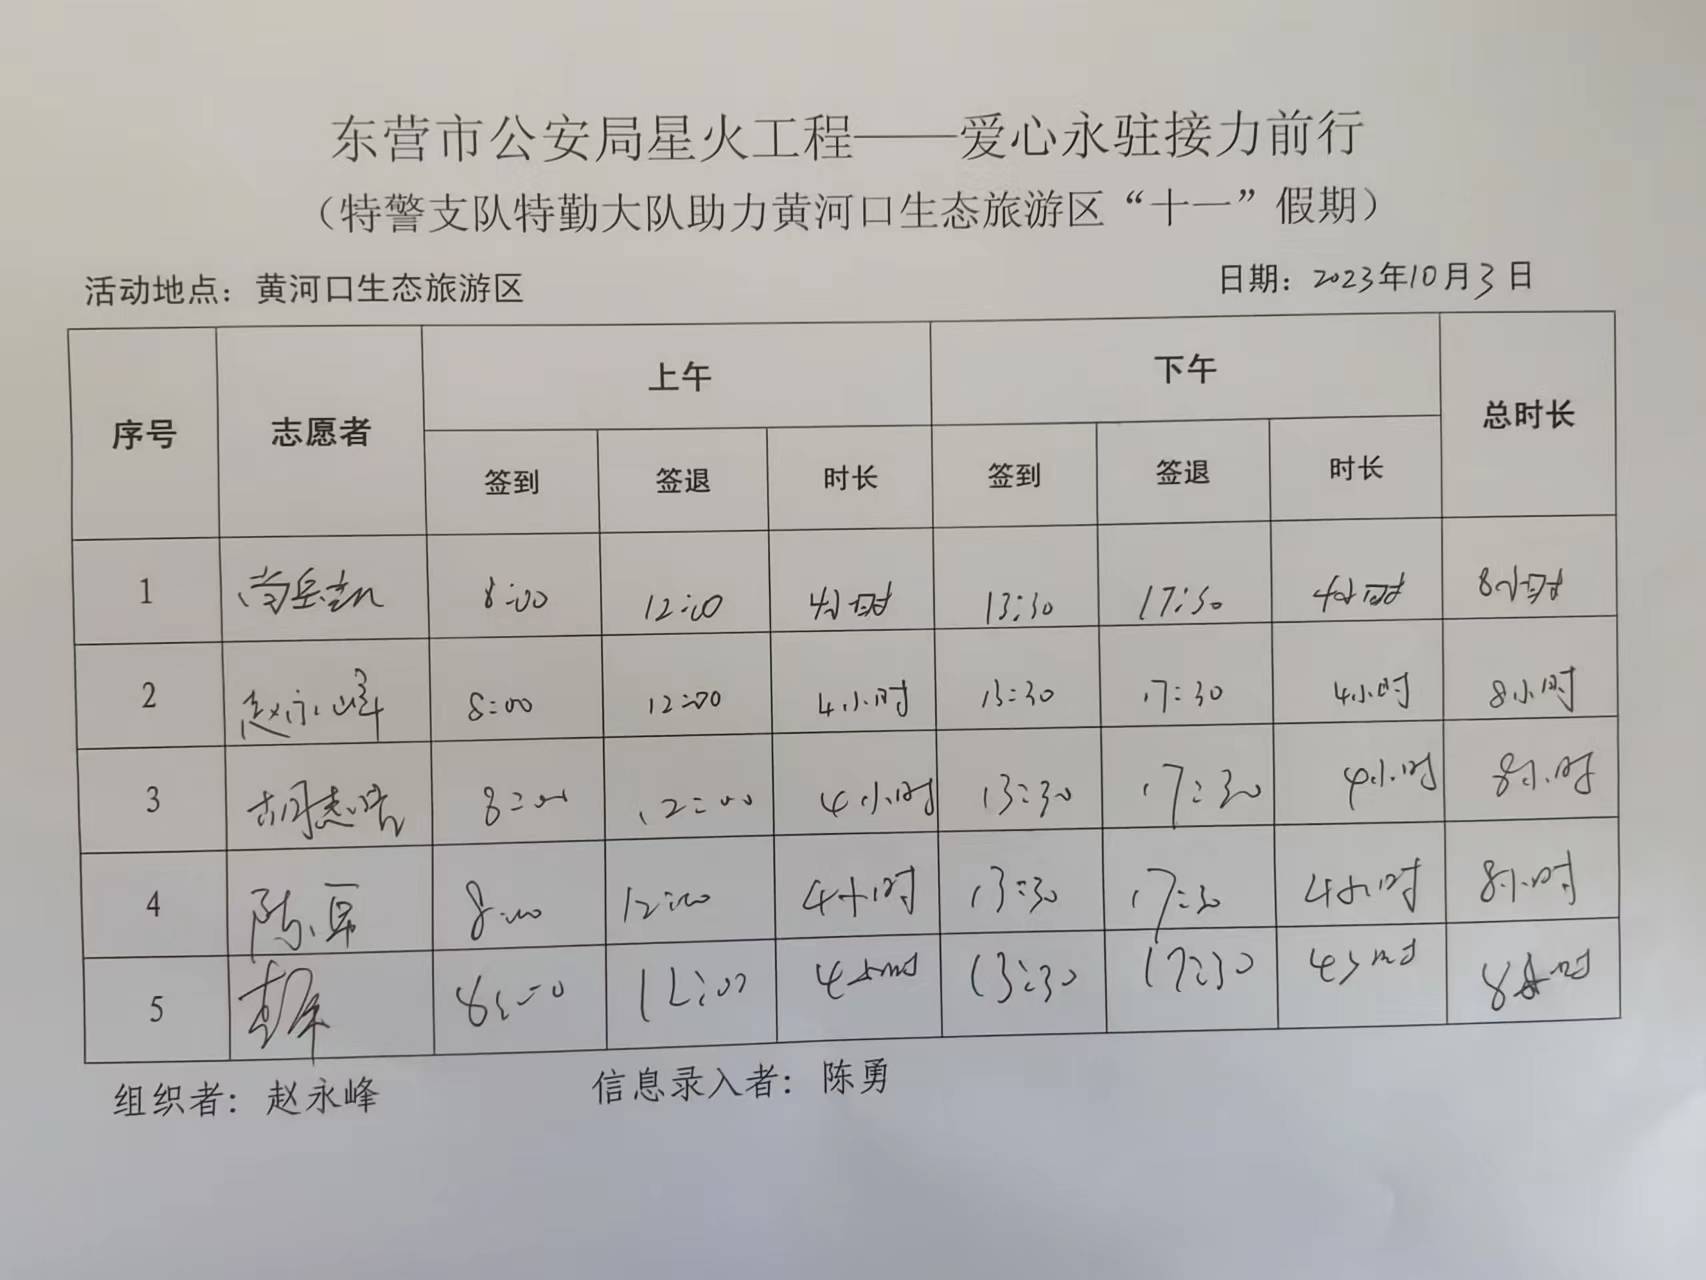 东营市公安局星火工程——爱心永驻接力前行
（特警支队特勤大队助力黄河口生态旅游区“十一”假期）
活动地点：黄河口生态旅游区 日期：2023年10月3日
序号 志愿者 上午 下午 总时长
签到 签退 时长 签到 签退 时长
1 8:00 12:00 4小时 13:30 17:30 4小时 8小时
2 赵永峰 8:00 12:00 4小时 13:30 17:30 4小时 8小时
3 胡志 8:00 12:00 4小时 13:30 17:30 4小时 8小时
4 陈勇 8:00 12:00 4小时 13:30 17:30 4小时 8小时
5 8:00 12:00 4小时 13:30 17:30 4小时 8小时
组织者：赵永峰 信息录入者：陈勇